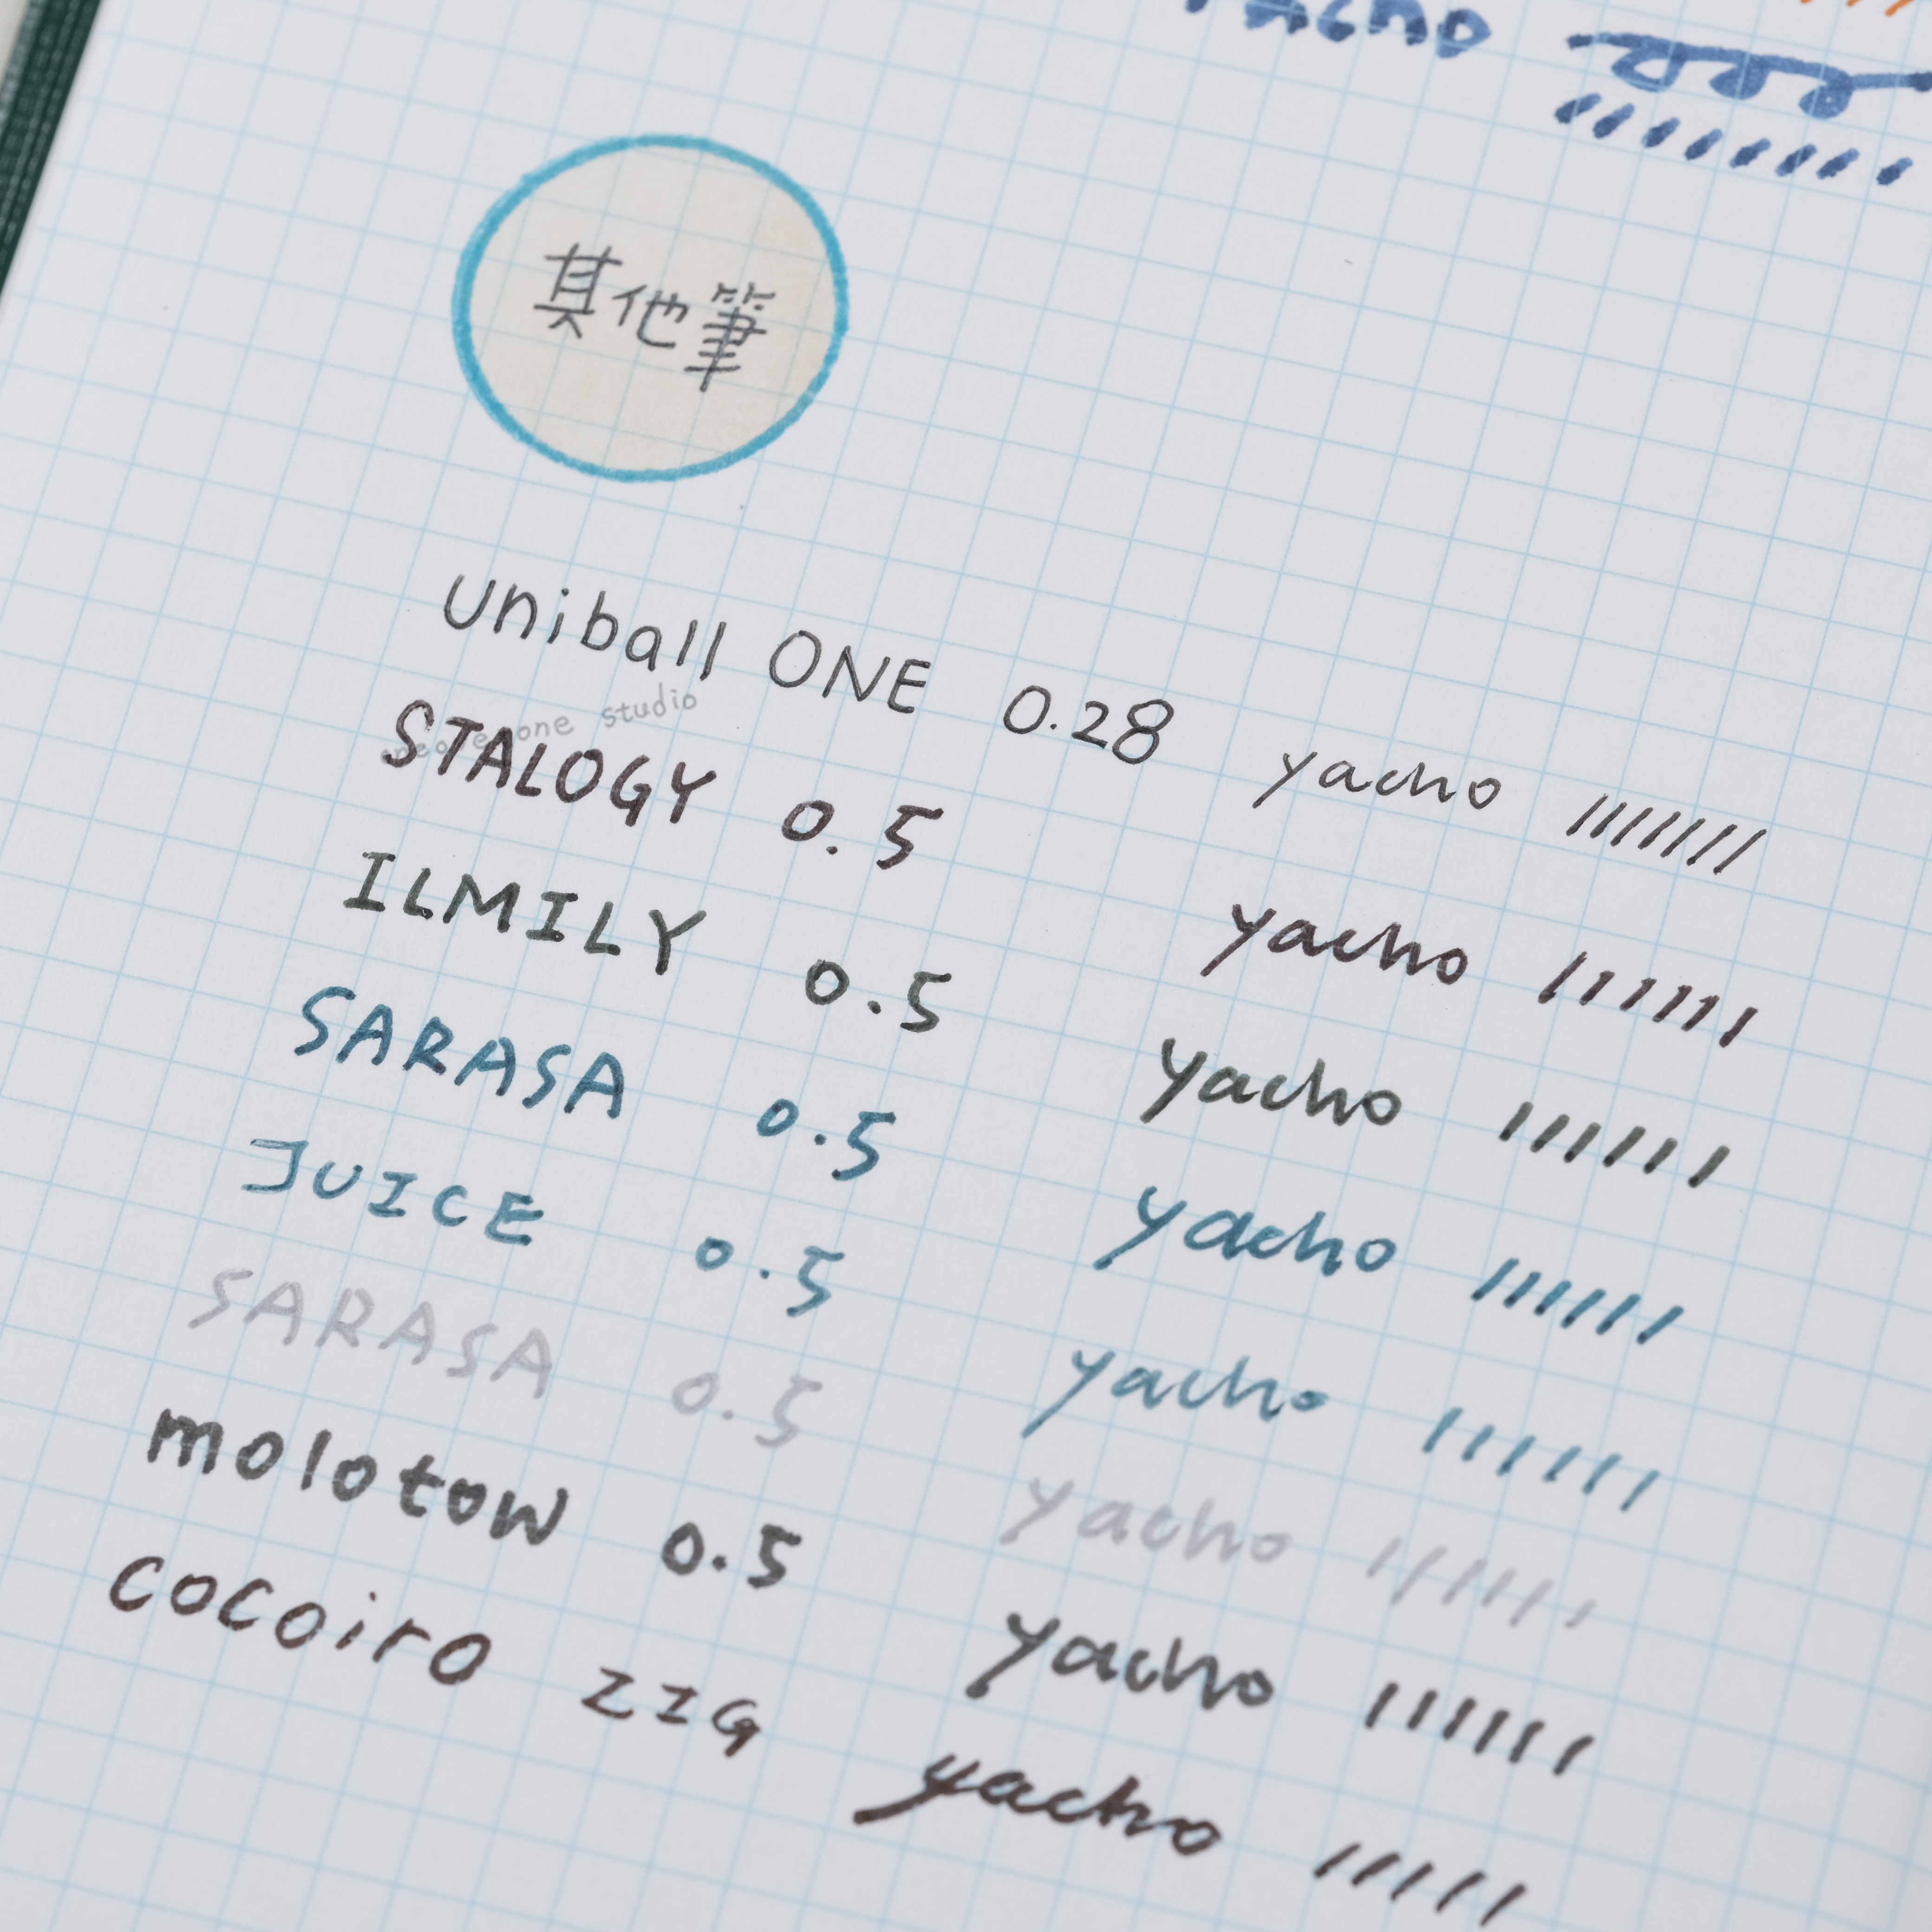 yacho
其他筆
uniball ONE 0.28 yacho
one studio
STALOGY 0.5 yacho
ILMILY 0.5 yacho
SARASA 0.5 yacho
JUICE 0.5 yacho
SARASA 0.5 yacho
molotow 0.5 yacho
cocoiro ZIG yacho